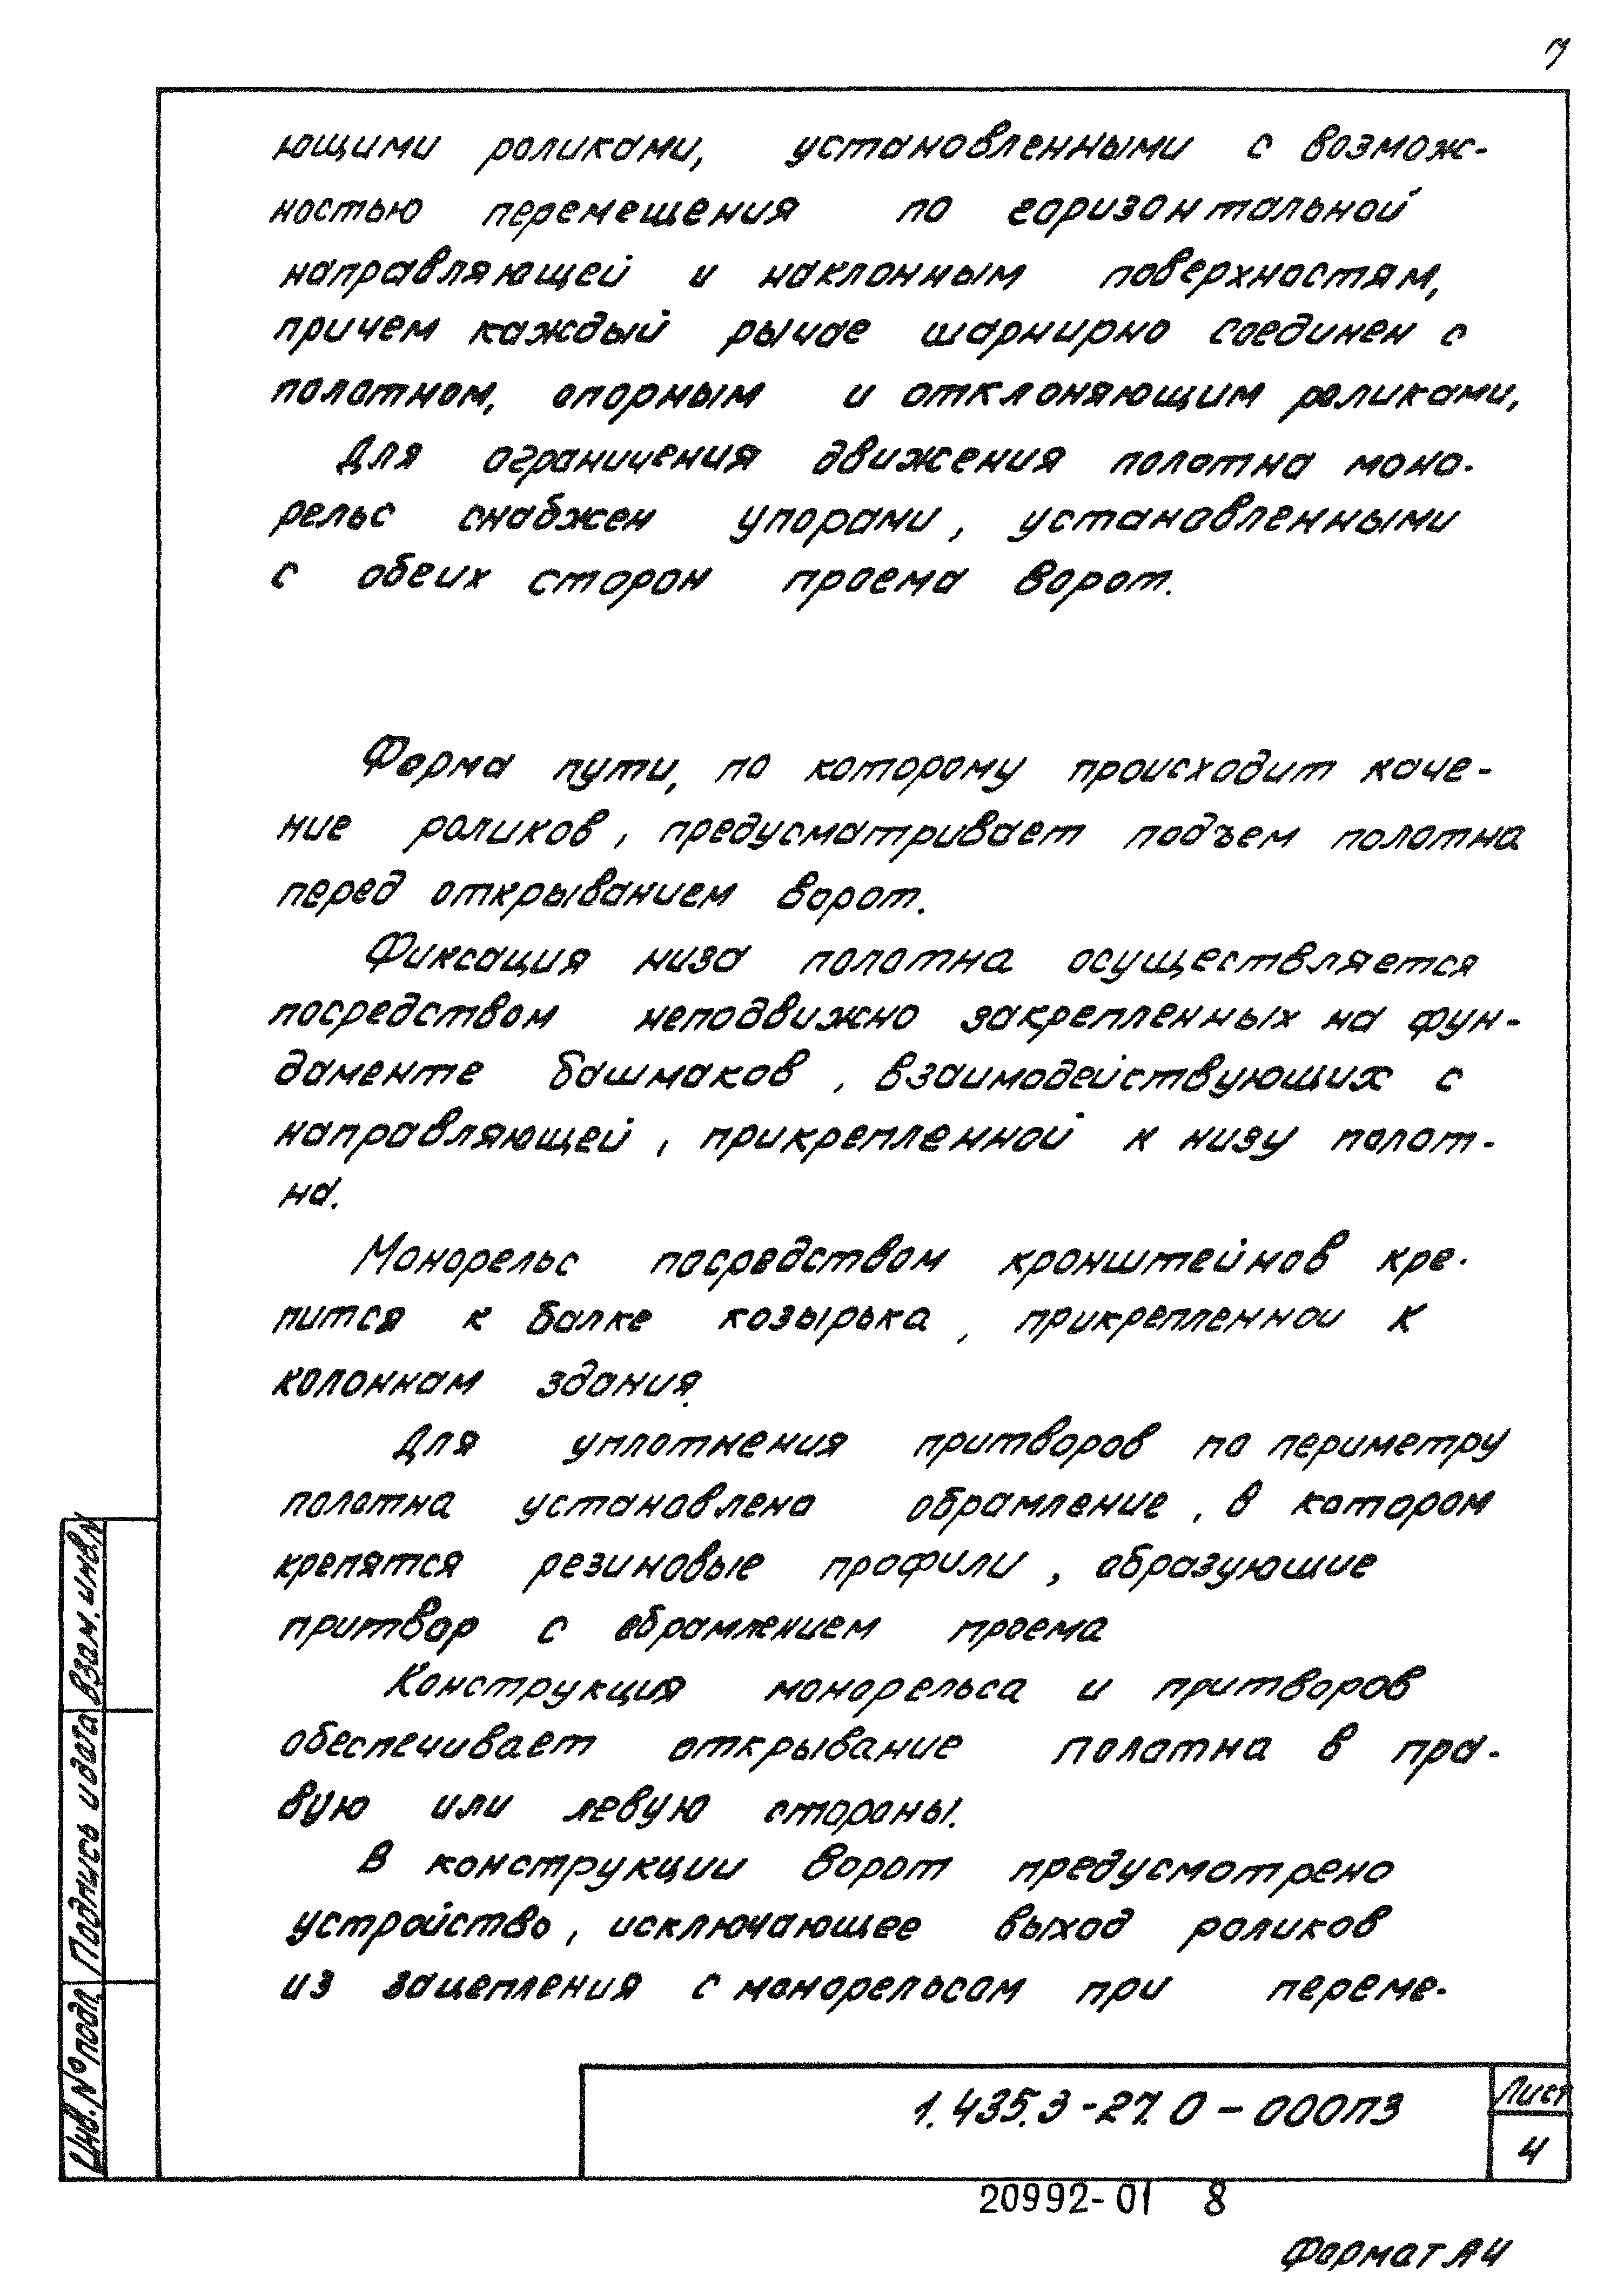 7
ющими роликами, установленными с возмож-
ностью перемещения по горизонтальной
направляющей и наклонным поверхностям,
причем каждый рычаг шарнирно соединен с
полотном, опорным и отклоняющим роликами,
Для ограничения движения полотна моно-
рельс снабжен упорами, установленными
с обеих сторон проема ворот.
Форма пути, по которому происходит каче-
ние роликов, предусматривает подъем полотна
перед открыванием ворот.
Фиксация низа полотна осуществляется
посредством неподвижно закрепленных на фун-
даменте башмаков, взаимодействующих с
направляющей, прикрепленной к низу полот-
на.
Монорельс посредством кронштейнов кре-
пится к балке козырька, прикрепленной к
колоннам здания.
Для уплотнения притворов по периметру
полотна установлено обрамление, в котором
крепятся резиновые профили, образующие
притвор с обрамлением проема
Конструкция монорельса и притворов
обеспечивает открывание полотна в пра-
вую или левую стороны.
В конструкции ворот предусмотрено
устройство, исключающее выход роликов
из зацепления с монорельсом при переме-
Инв. № подл. Подпись и дата Взам. инв. №
1.435.3-27.0-000ПЗ
Лист
4
20992-01 8
Формат А4